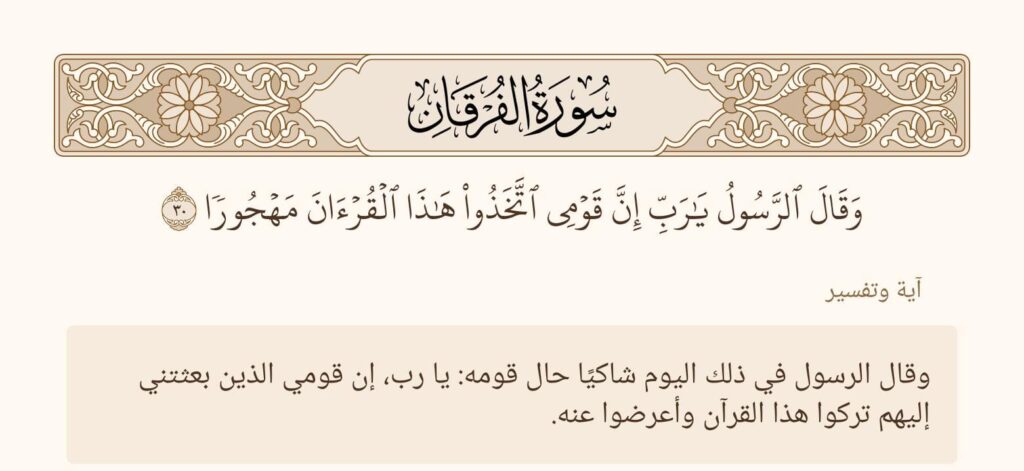 سُورَةُ الفُرْقَانِ
وَقَالَ ٱلرَّسُولُ يَـٰرَبِّ إِنَّ قَوْمِى ٱتَّخَذُوا۟ هَـٰذَا ٱلْقُرْءَانَ مَهْجُورًا ٣٠
آية وتفسير
وقال الرسول في ذلك اليوم شاكيًا حال قومه: يا رب، إن قومي الذين بعثتني
إليهم تركوا هذا القرآن وأعرضوا عنه.